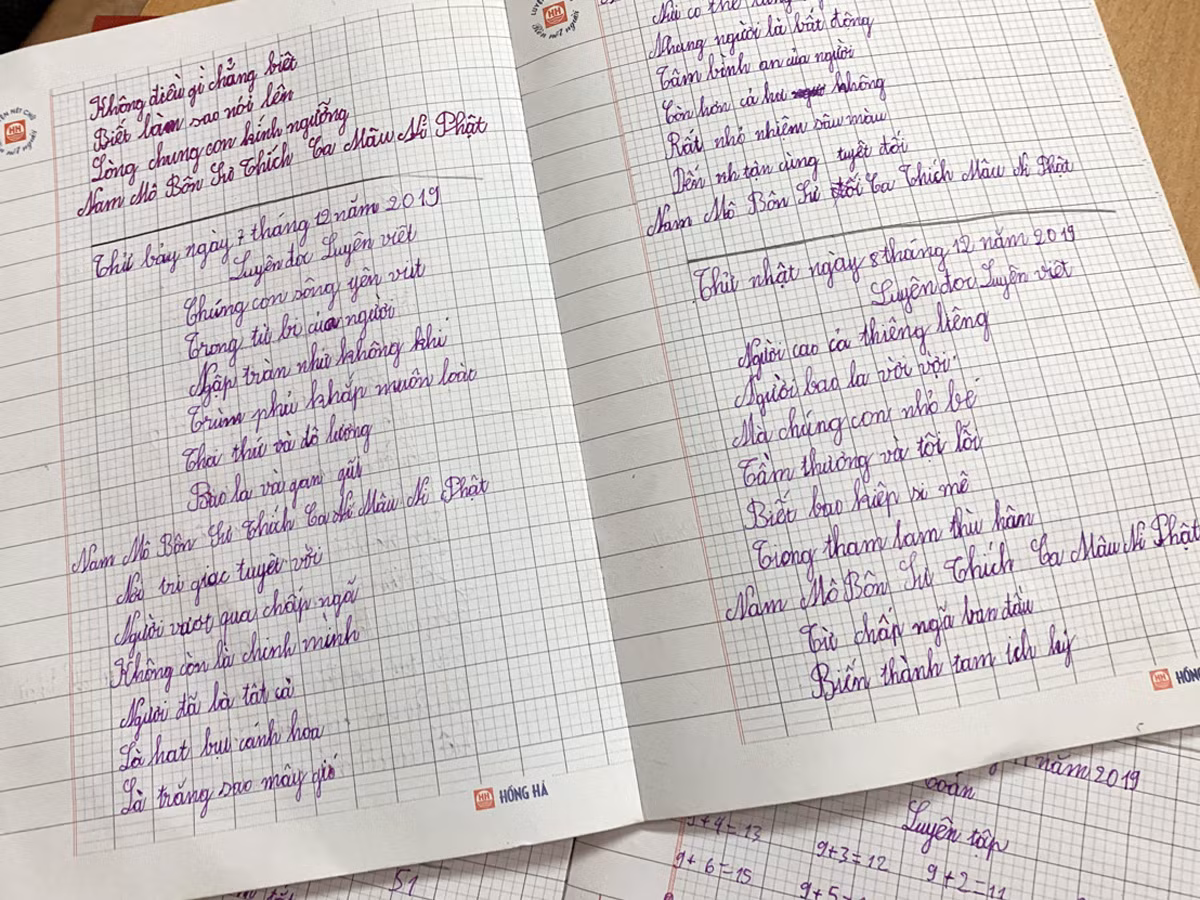 Không điều gì chẳng biết
Biết làm sao nói lên
Lòng chung con kính ngưỡng
Nam Mô Bôn Sư Thích Ca Mâu Ni Phật
Thứ bảy ngày 7 tháng 12 năm 2019
Luyện đọc Luyện viết
Chúng con sông yên vui
Trong từ bi của người
Ngập tràn như không khí
Trùm phủ khắp muôn loài
Tha thứ và độ lượng
Bao la và gần gũi
Nam Mô Bôn Sư Thích Ca Mâu Ni Phật
Nơi tri giác tuyệt vời
Người vượt qua chấp ngã
Không còn là chính mình
Người đã là tất cả
Là hạt bụi cánh hoa
Là trăng sao mây gió
HH HỒNG HÀ
Nhưng người là bất động
Tâm bình an của người
Còn hơn cả hư không
Rất nhỏ nhiệm sâu màu
Đến tận cùng tuyệt đối
Nam Mô Bôn Sư Ca Thích Mâu Ni Phật
Thứ nhật ngày 8 tháng 12 năm 2019
Luyện đọc Luyện viết
Người cao cả thiêng liêng
Người bao la vời vợi
Mà chúng con nhỏ bé
Tầm thường và tội lỗi
Biết bao kiếp si mê
Trong tham lam thù hận
Nam Mô Bôn Sư Thích Ca Mâu Ni Phật
Từ chấp ngã ban đầu
Biến thành tam ích kỷ
HH HỒNG
năm 2019
Toán
Luyện tập
9+4=13
9+3=12
9+2=11
9+6=15
9+5=
51